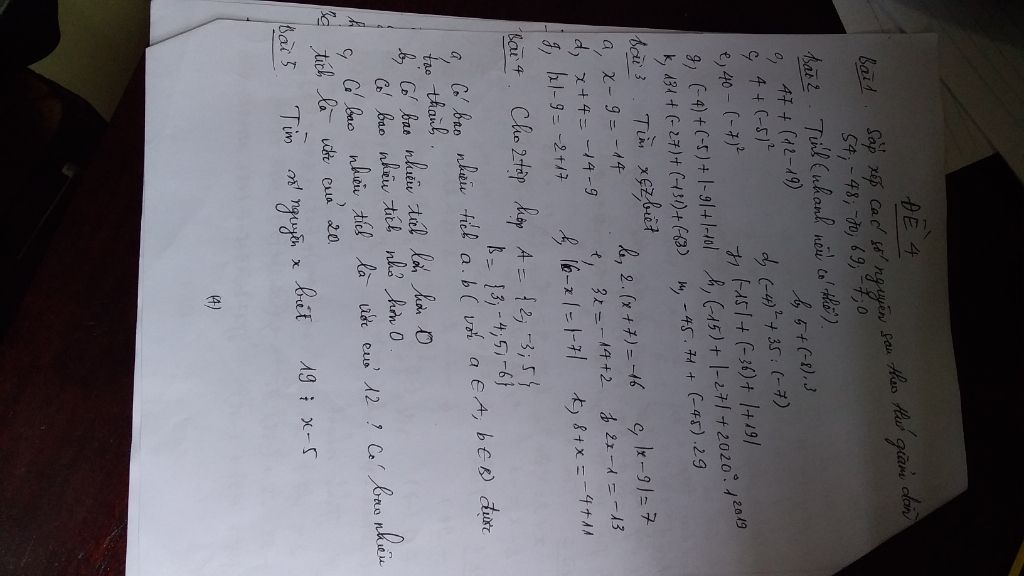 ĐỀ 4
Bài 1. Sắp xếp các số nguyên sau theo thứ giảm dần
54, -48, -70, 69, -7, 0
Bài 2. Tính (nhanh nếu có thể).
a, 47 + (12-19) b, 5 + (-8).3
c, 4 + (-5)² d, (-4)² + 35.(-7)
e, 40 - (-7)² f, |-15| + (-36) + |+19|
g, (-4) + (-5) + |-9| + |-10| h, (-15) + |-27| + 2020⁰. 1²⁰¹⁹
k, 131 + (-27) + (-131) + (-63) m, -45.71 + (-45).29
Bài 3. Tìm x∈Z, biết
a, x - 9 = -14 b, 2.(x+7) = -16 c, |x-9| = 7
d, x + 4 = -14 - 9 e, 3x = -14 + 2 f, 2x - 1 = -13
g, |x| - 9 = -2 + 17 h, |6-x| = |-7| k, 8 + x = -4 + 11
Bài 4. Cho 2 tập hợp A = {2, -3, 5}
B = {3, -4, 5, -6}
a, Có bao nhiêu tích a.b (với a ∈ A, b ∈ B) được
tạo thành.
b, Có bao nhiêu tích lớn hơn 0
Có bao nhiêu tích nhỏ hơn 0.
c, Có bao nhiêu tích là ước của 12? Có bao nhiêu
tích là ước của 20
Bài 5. Tìm số nguyên x biết 19 ⋮ x - 5